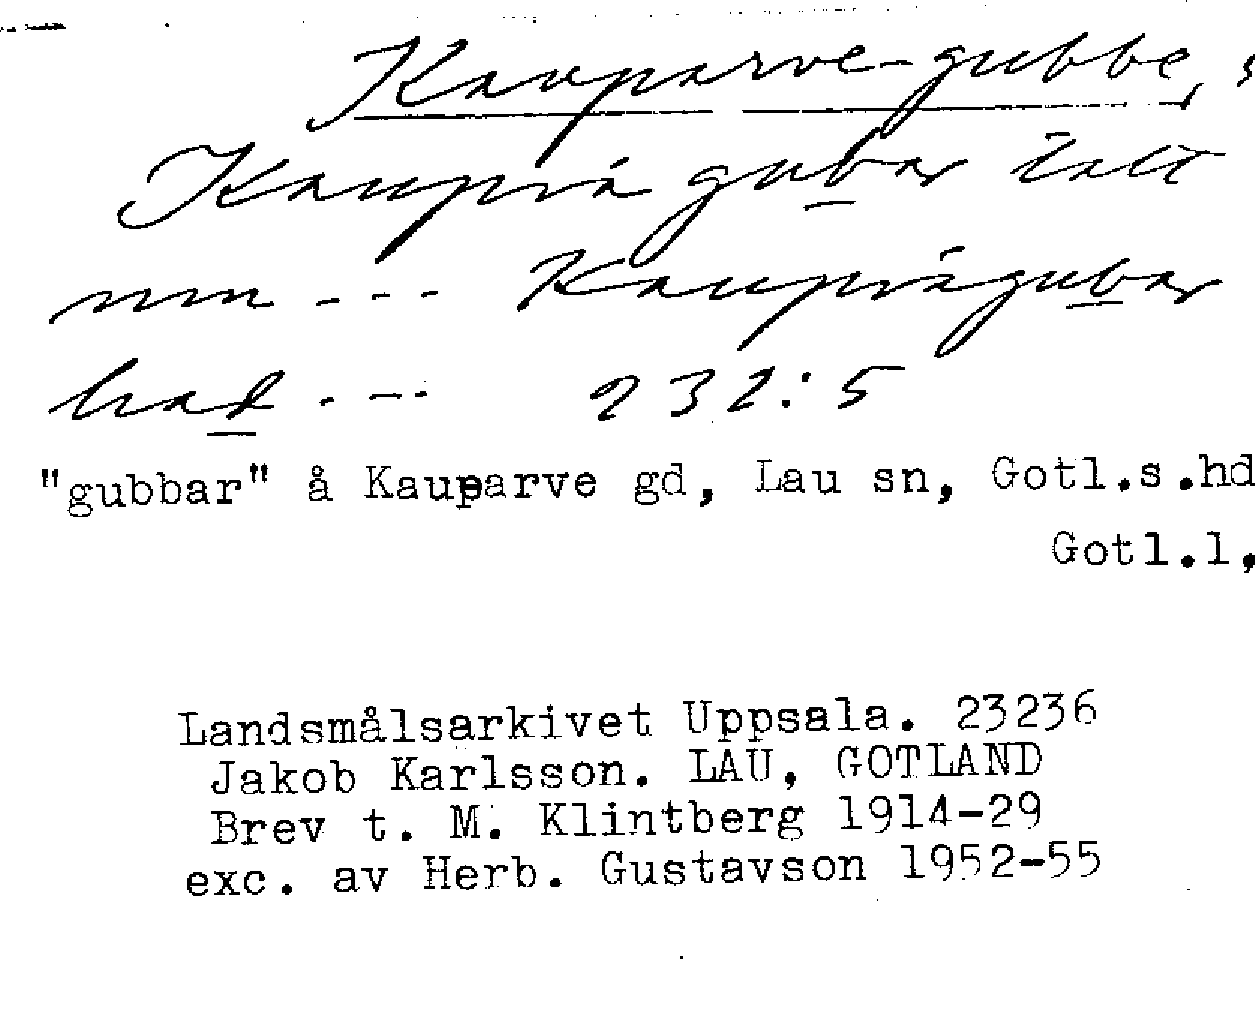 Kauparve-gubbe, s
Kauprá gubar
mm --- Kauprágubar
had --- 232:5
"gubbar" å Kauparve gd, Lau sn, Gotl.s.hd
Gotl.l,
Landsmålsarkivet Uppsala. 23236
Jakob Karlsson. LAU, GOTLAND
Brev t. M. Klintberg 1914-29
exc. av Herb. Gustavson 1952-55